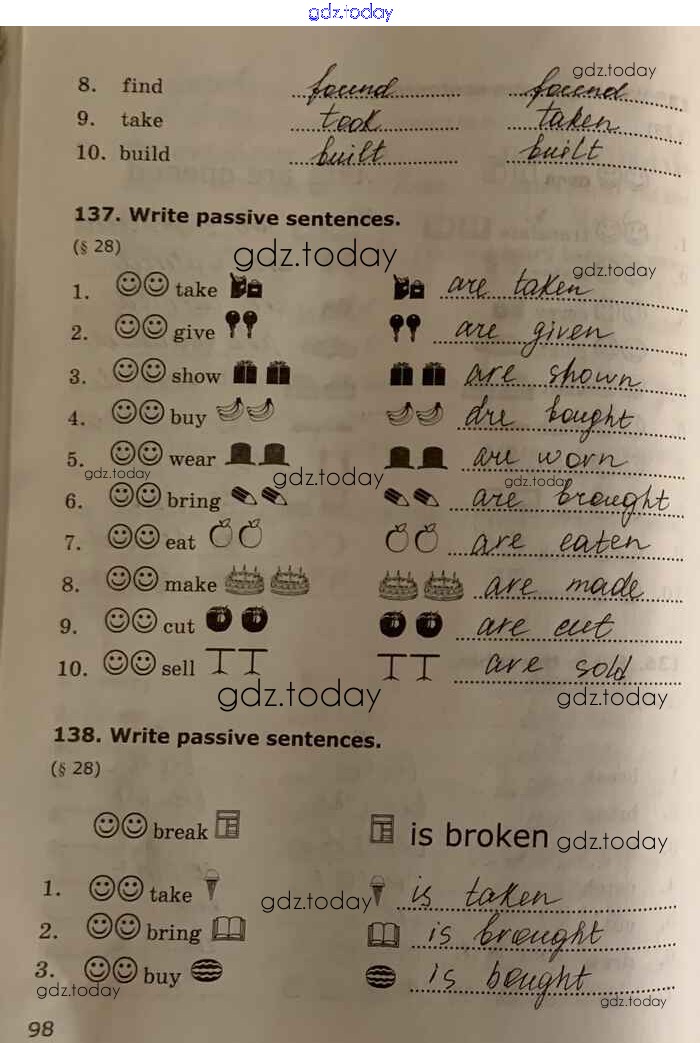 gdz.today
gdz.today
8. find found found
9. take took taken
10. build built built
137. Write passive sentences.
(§ 28)
gdz.today
gdz.today
1. take are taken
2. give are given
3. show are shown
4. buy are bought
5. wear are worn
gdz.today gdz.today gdz.today
6. bring are brought
7. eat are eaten
8. make are made
9. cut are cut
10. sell are sold
gdz.today gdz.today
138. Write passive sentences.
(§ 28)
break is broken gdz.today
1. take gdz.today is taken
2. bring is brought
3. buy is bought
gdz.today gdz.today
98